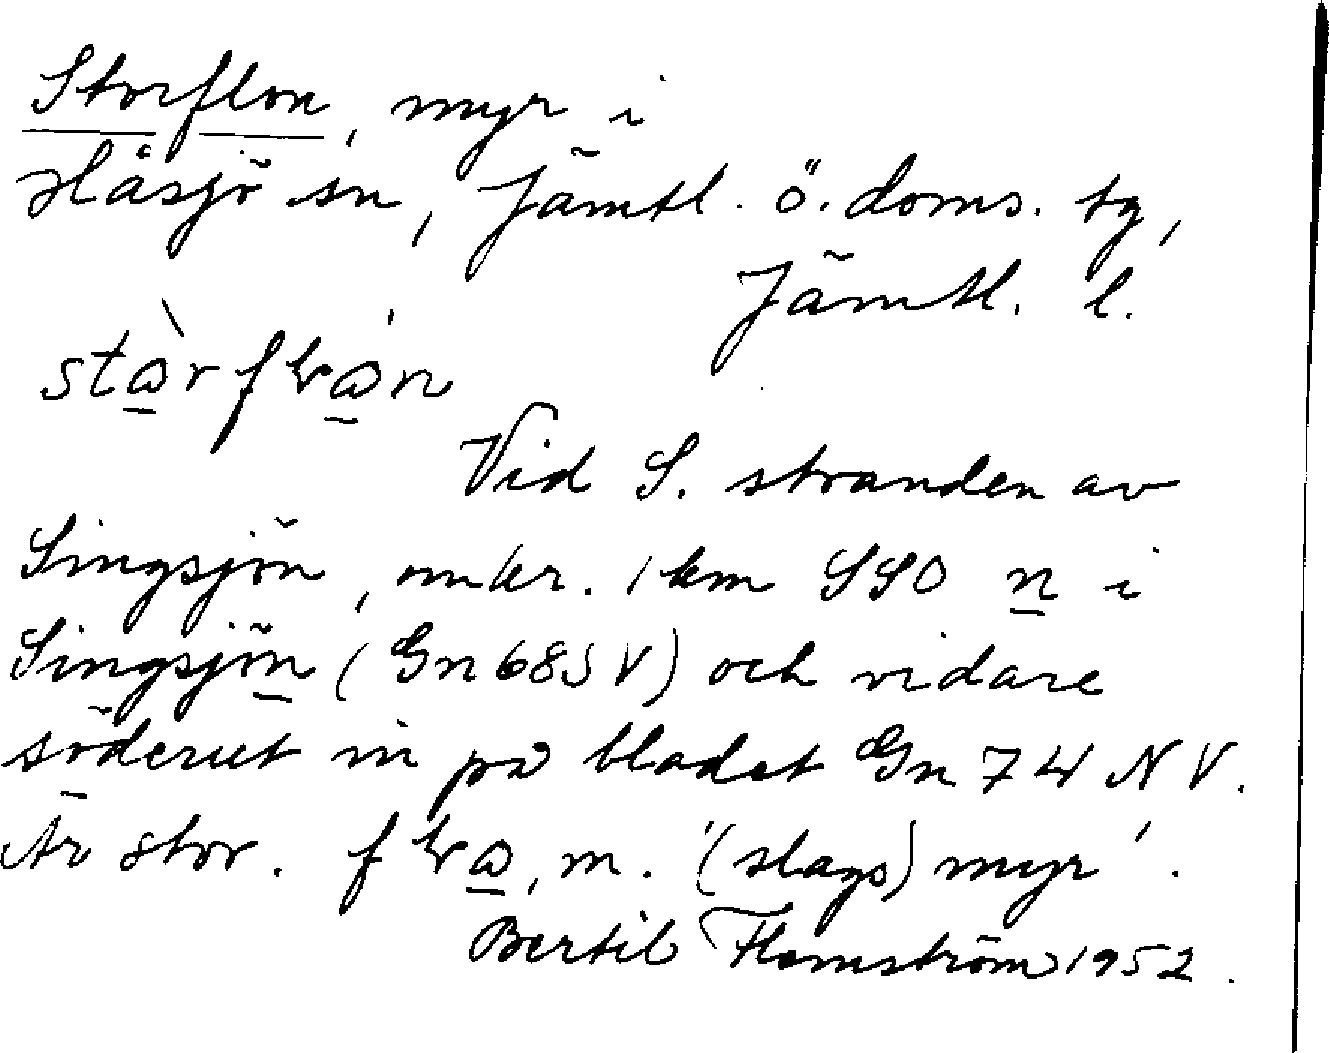 Storflon, myr i
Håsjö sn, Jämtl. ö. doms. tg,
Jämtl. l.
Vid S. stranden av
Singsjön, omkr. 1 km SSO n i
Singsjön (Gn 68 SV) och vidare
söderut in på bladet Gn 74 NV.
Är stor. m. '(slags) myr'.
Bertil Flemström 1952.